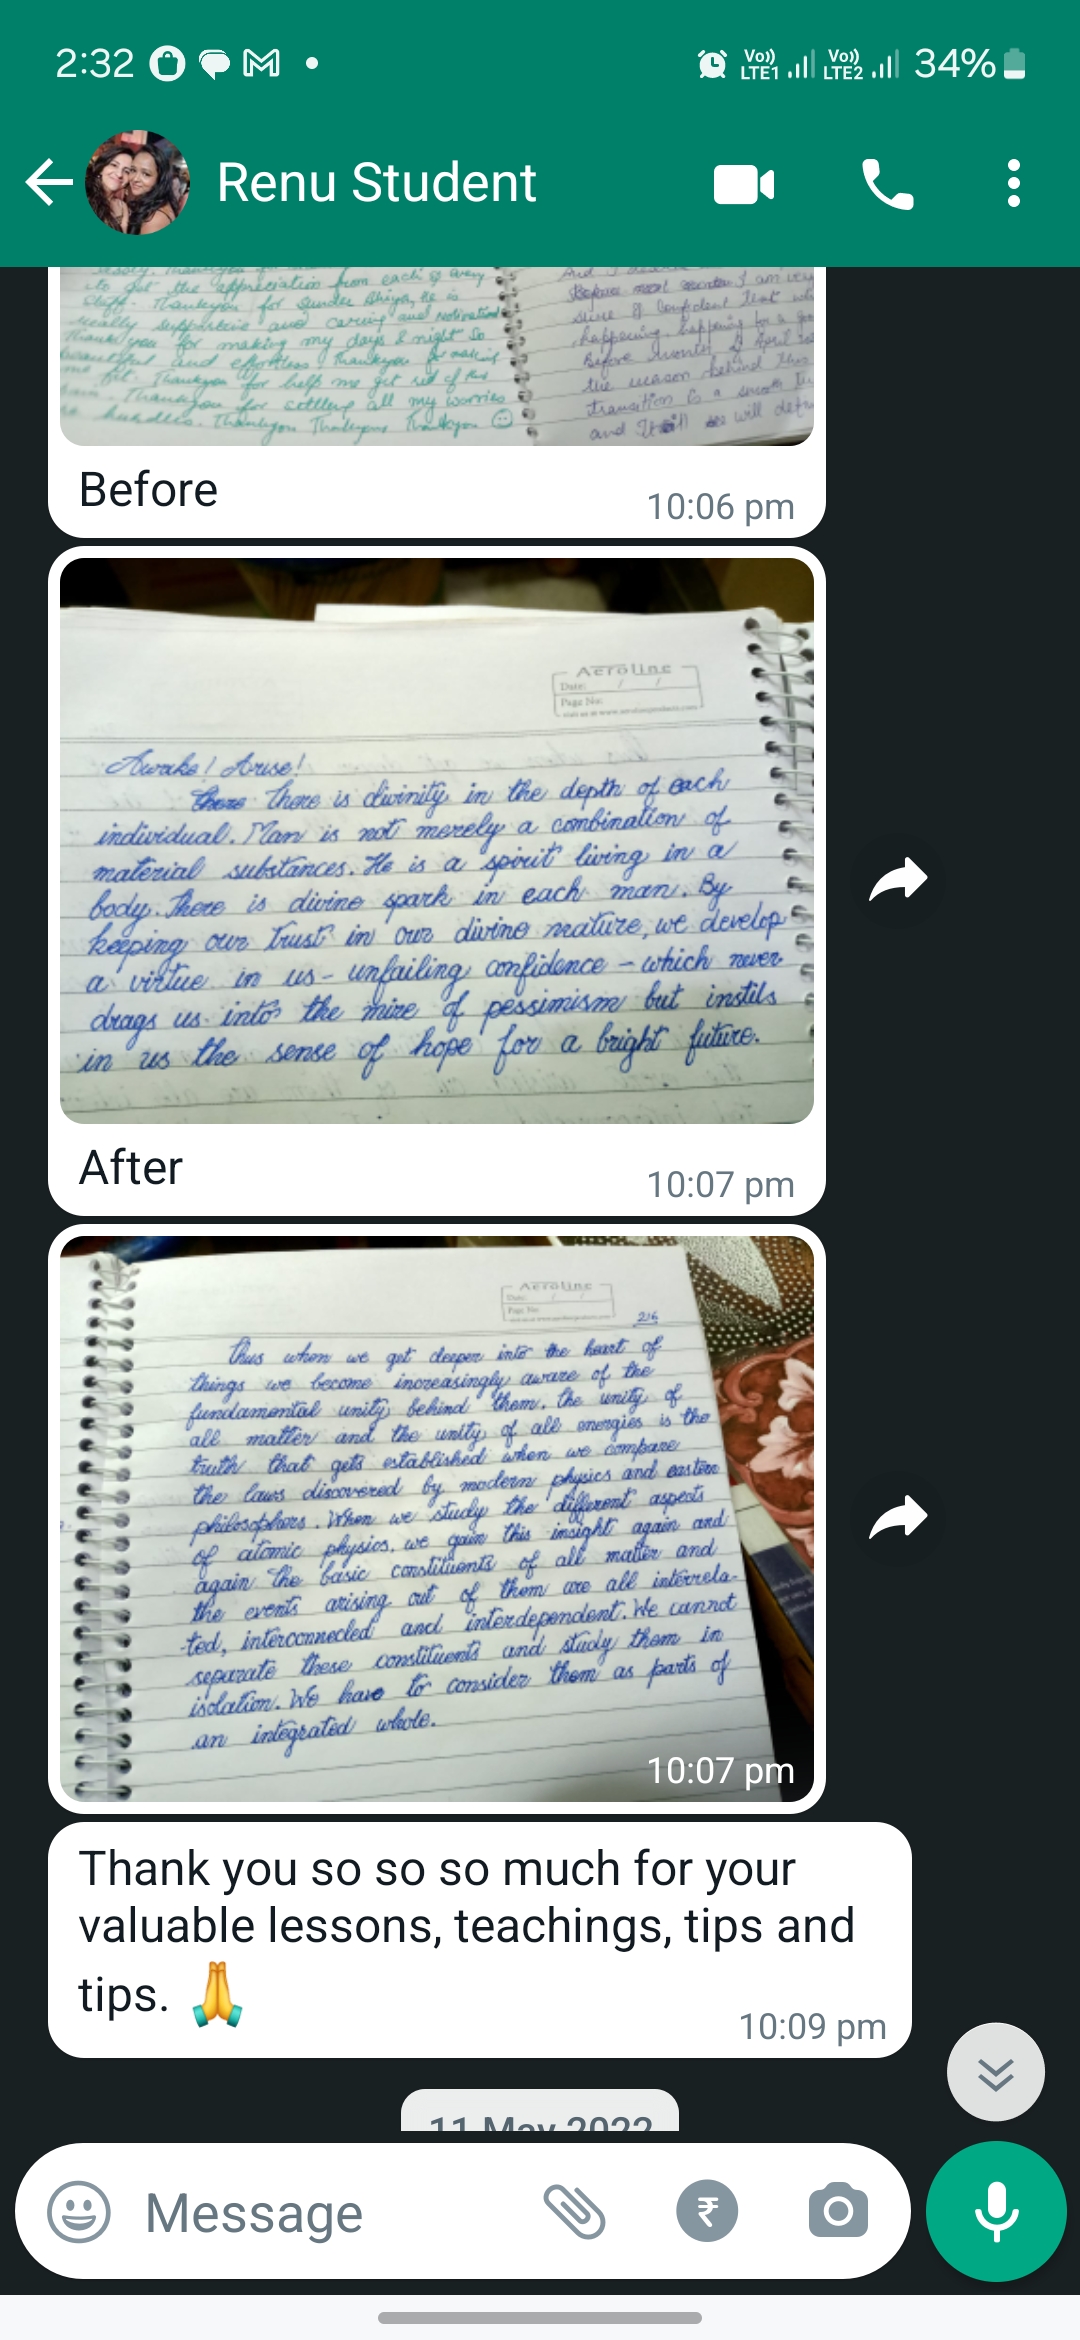 2:32
Vo)) LTE1 Vo)) LTE2 34%
Renu Student
to get the appreciation from each & every
staff. Thankyou for Sunder Bhiya, He is
really supportive and caring and motivational
Thank you for making my days & night so
beautiful and effortless. Thankyou for making
me fit. Thankyou for help me get rid of this
Thankyou for settling all my worries
hundles. Thankyou Thankyou Thankyou
I am very
sure & Confident that
happening, happening for a
Before April
the reason behind this
transition is a smooth
and It will will
Before
10:06 pm
Aeroline
Date: / /
Page No:
Awake! Arise!
There is divinity in the depth of each
individual. Man is not merely a combination of
material substances. He is a spirit living in a
body. There is divine spark in each man. By
keeping our trust in our divine nature, we develop
a virtue in us - unfailing confidence - which never
drags us into the mire of pessimism but instils
in us the sense of hope for a bright future.
After
10:07 pm
Aeroline
Date: / /
Page No:
216
Thus when we get deeper into the heart of
things we become increasingly aware of the
fundamental unity behind them. The unity of
all matter and the unity of all energies is the
truth that gets established when we compare
the laws discovered by modern physics and eastern
philosophers. When we study the different aspects
of atomic physics, we gain this insight again and
again. The basic constituents of all matter and
the events arising out of them are all interrela-
-ted, interconnected and interdependent. We cannot
separate these constituents and study them in
isolation. We have to consider them as parts of
an integrated whole.
10:07 pm
Thank you so so so much for your
valuable lessons, teachings, tips and
tips. 🙏
10:09 pm
11 May 2022
Message